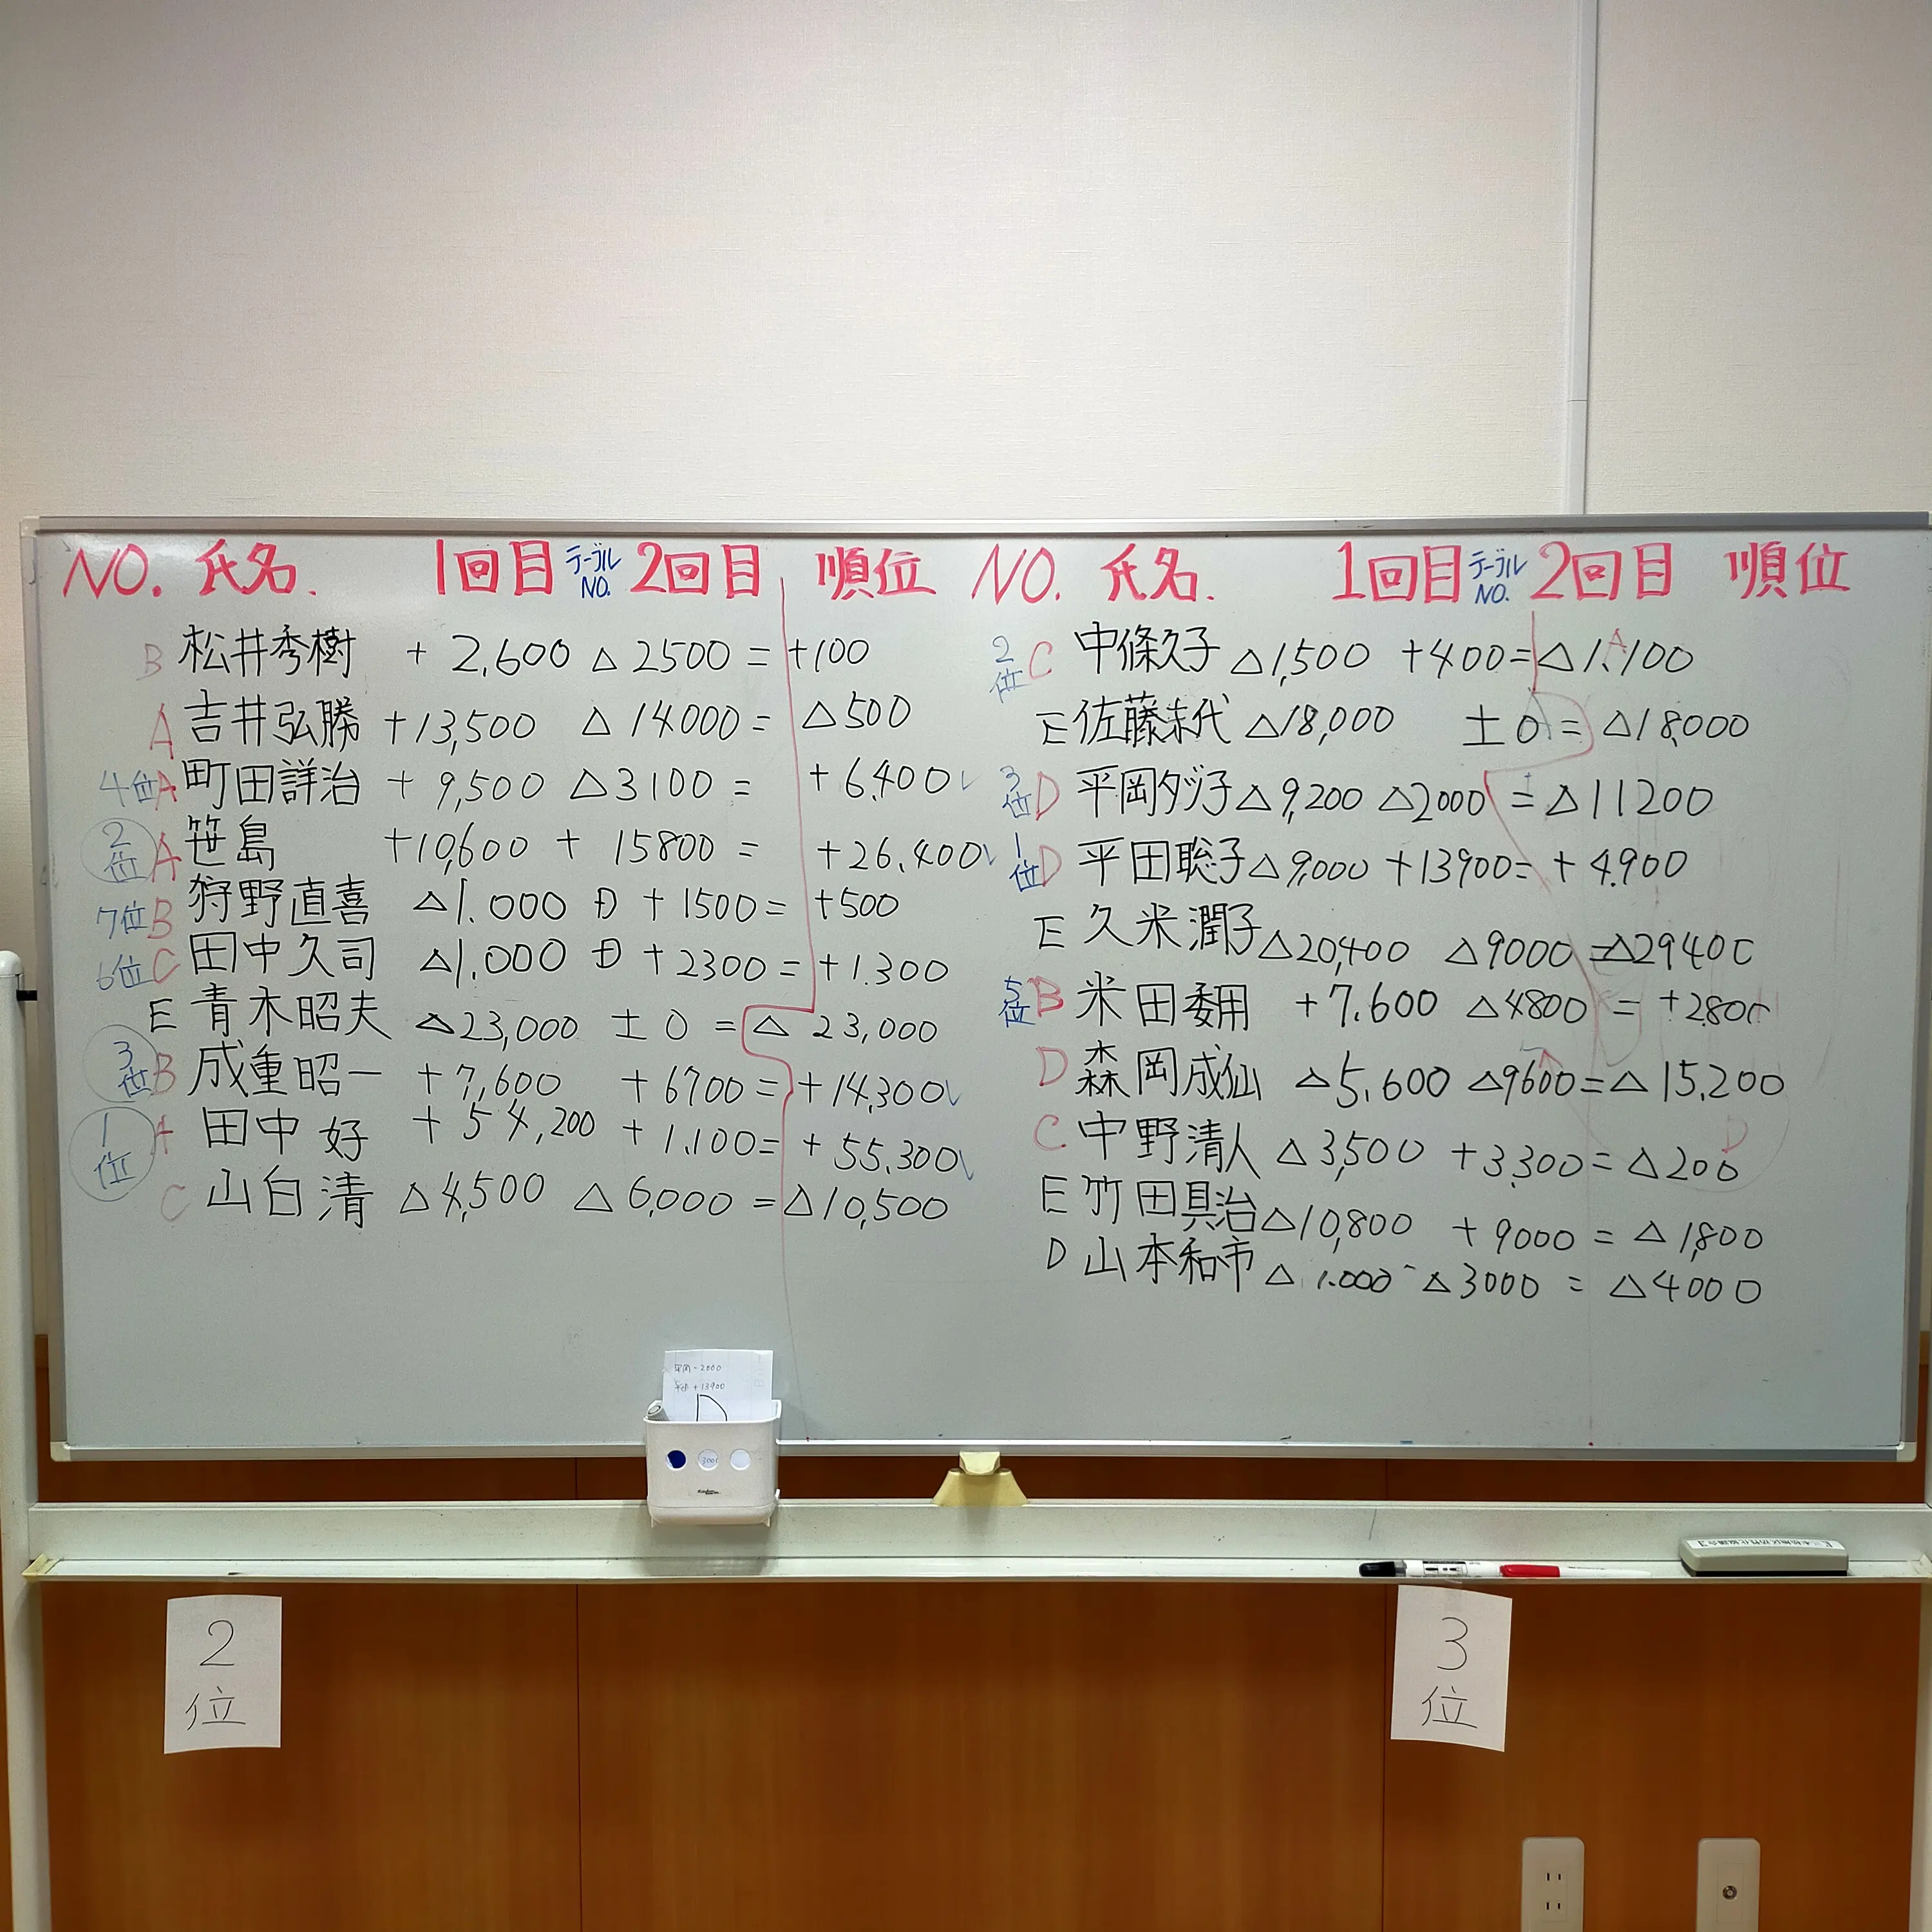 NO. 氏名. 1回目 テーブルNO. 2回目 順位
B 松井秀樹 + 2,600 △ 2500 = +100
A 吉井弘勝 +13,500 △ 14000 = △500
4位 A 町田詳治 + 9,500 △3100 = + 6,400
2位 A 笹島 +10,600 + 15800 = +26,400
7位 B 狩野直喜 △1.000 + 1500 = +500
6位 C 田中久司 △1.000 + 2300 = +1.300
E 青木昭夫 △23,000 ± 0 = △ 23,000
3位 B 成重昭一 +7,600 +6700 = +14,300
1位 A 田中 好 + 54,200 + 1.100 = + 55.300
C 山白清 △4,500 △ 6,000 = △10,500
NO. 氏名. 1回目 テーブルNO. 2回目 順位
2位 C 中條久子 △1,500 +400 = △1.100
E 佐藤末代 △18,000 ±0 = △18,000
3位 D 平岡タツ子 △9,200 △2000 = △11200
1位 D 平田聡子 △9,000 +13900 = +4,900
E 久米潤子 △20,400 △9000 = △29400
5位 B 米田 + 7.600 △4800 = +2800
D 森岡成仙 △5.600 △9600 = △ 15,200
C 中野清人 △3,500 +3,300 = △200
E 竹田具治 △10,800 + 9000 = △ 1,800
D 山本和市 △ 1.000 △3000 = △4000
平岡 -2000
平田 +13900
D
2位
3位